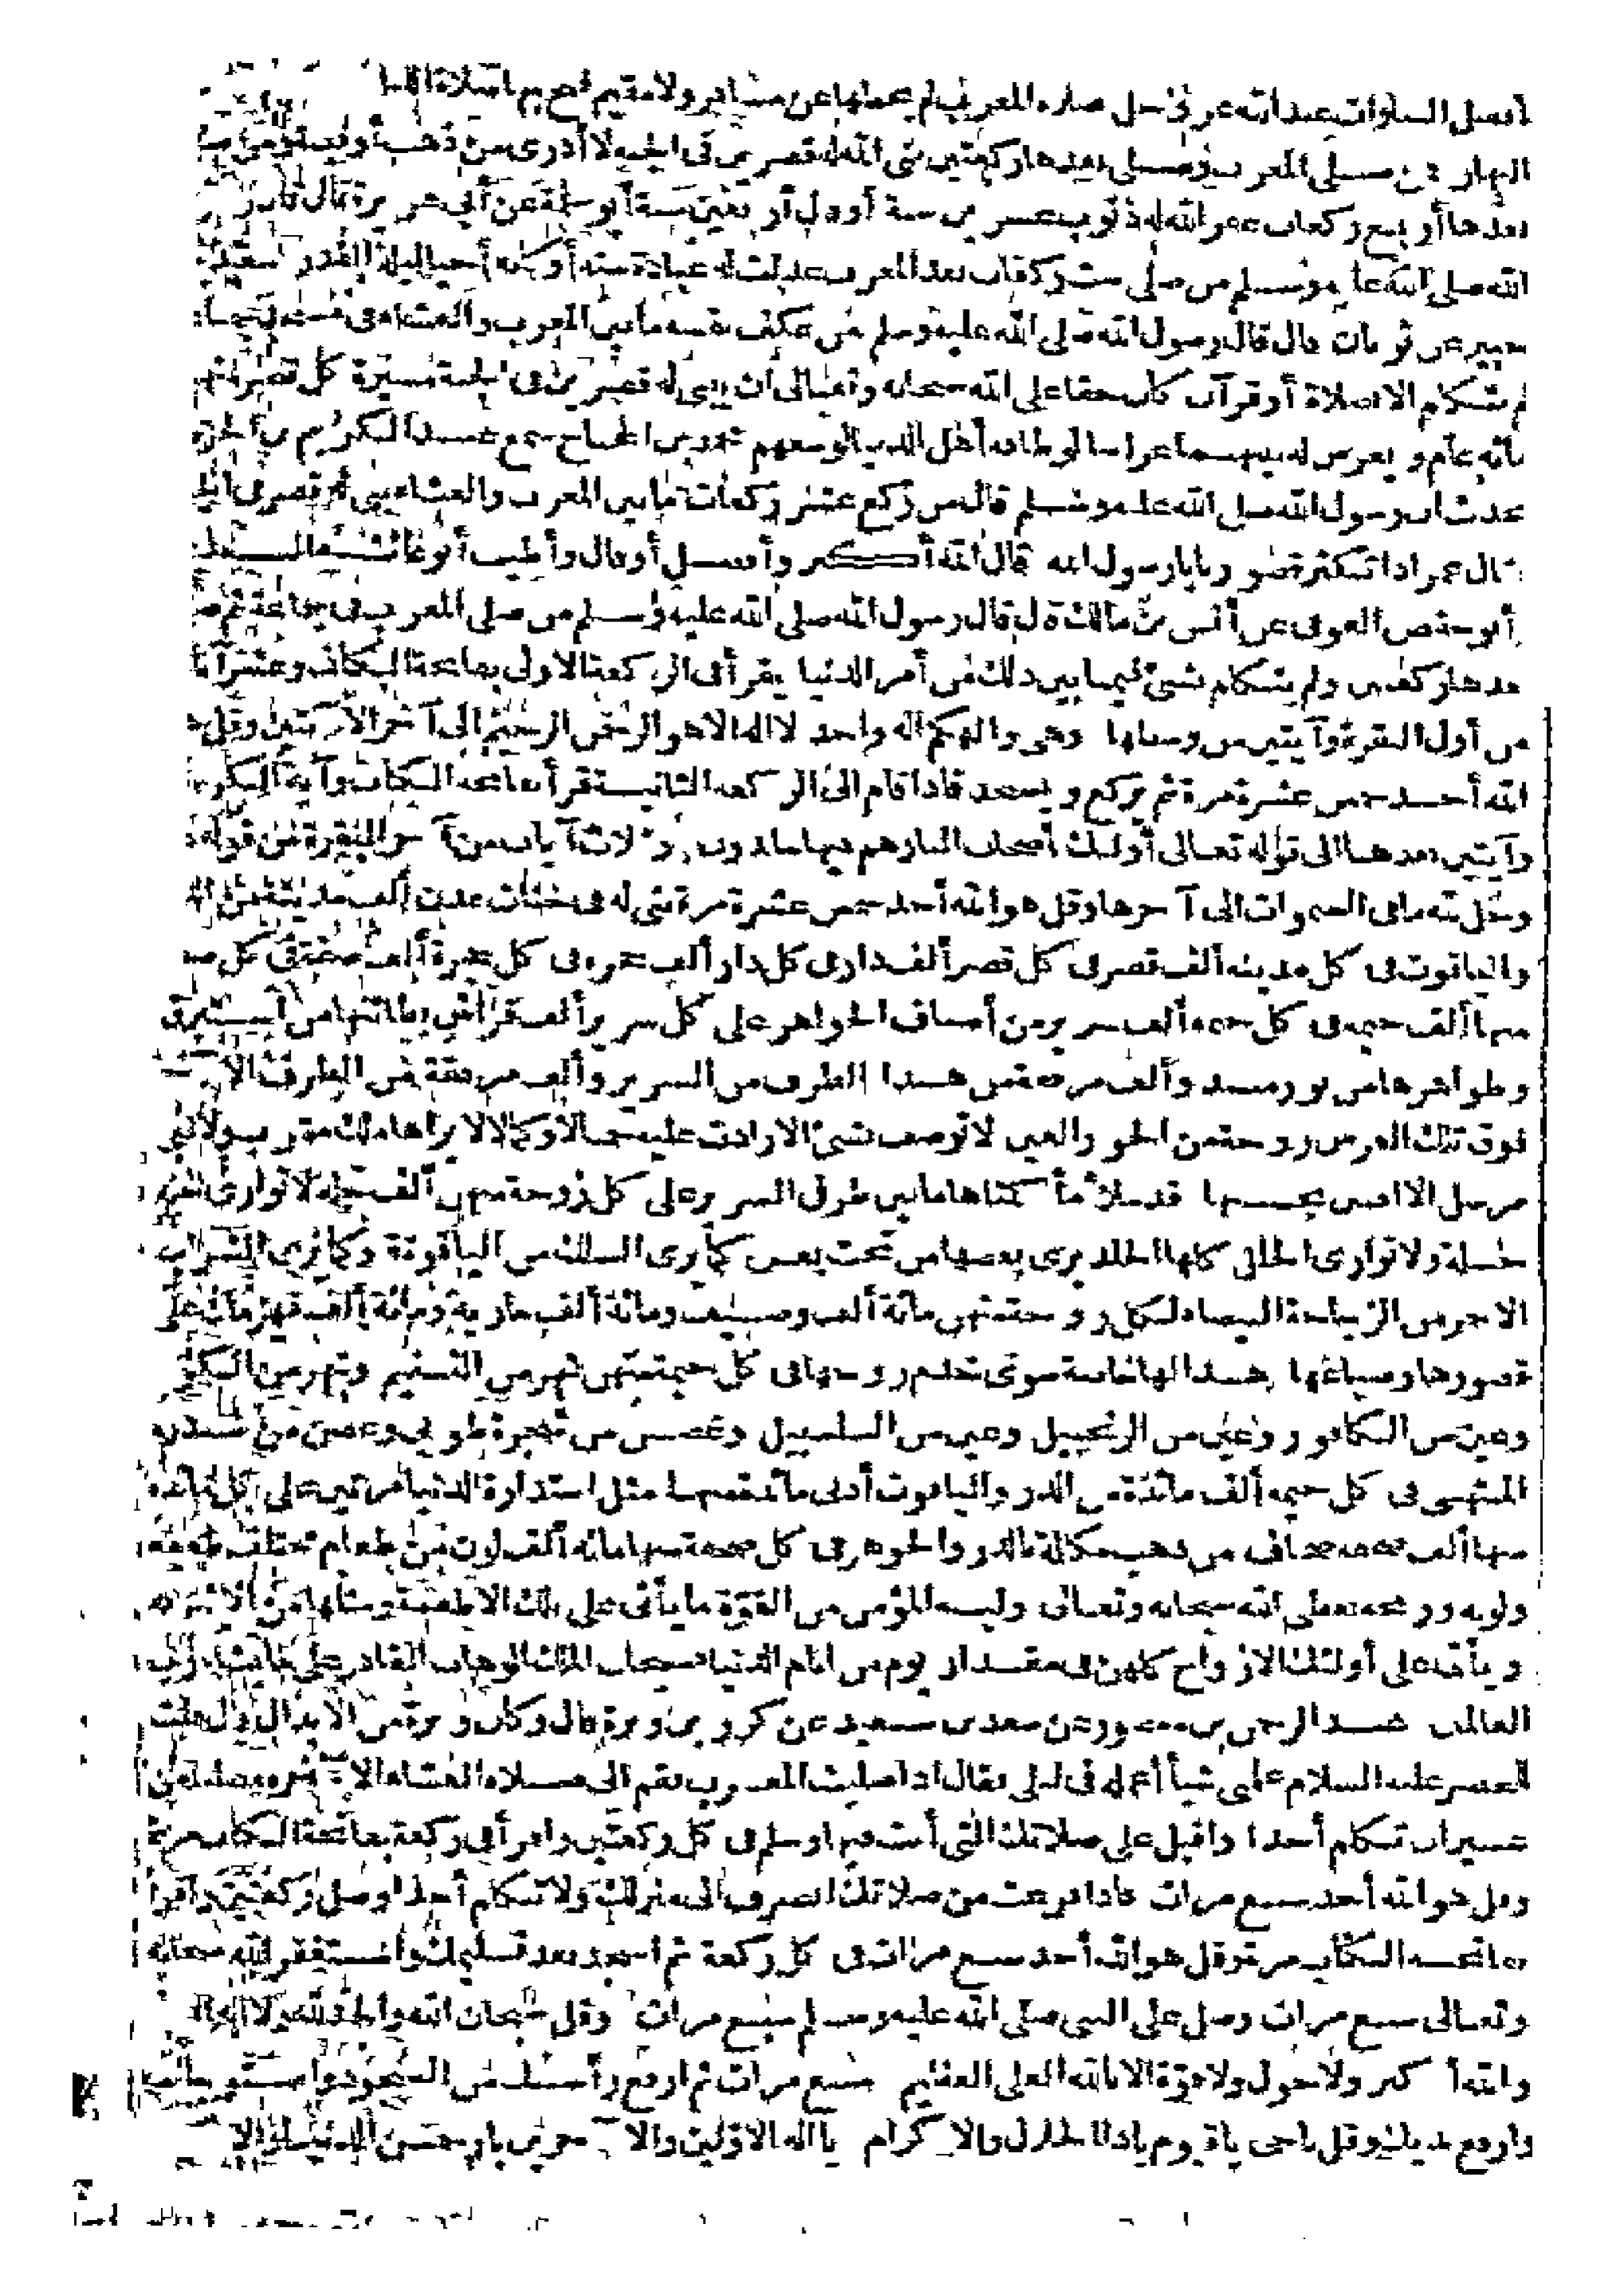 أفضل الصلوات عند الله عز وجل صلاة المغرب لم يحطها عن مسافر ولا مقيم فتح بها صلاة الليل
النهار فمن صلى المغرب وصلى بعدها ركعتين بنى الله له قصرين في الجنة لا أدرى من ذهب أو فضة ومن صلى
بعدها أربع ركعات غفر الله له ذنوب عشرين سنة أو قال أربعين سنة أبو سلمة عن أبي هريرة قال قال رسول
الله صلى الله عليه وسلم من صلى ست ركعات بعد المغرب عدلت له عبادة سنة أو كأنه أحيا ليلة القدر سعيد بن
جبير عن ثوبان قال قال رسول الله صلى الله عليه وسلم من عكف نفسه ما بين المغرب والعشاء في مسجد جماعة
لم يتكلم الا بصلاة أو قرآن كان حقا على الله سبحانه وتعالى ان يبنى له قصرين في الجنة مسيرة كل قصر منهما
مائة عام و يغرس له بينهما غراسا لو طافه أهل الدنيا لوسعهم محمد بن الحجاج سمع عبد الكريم بن الحرث
يحدث ان رسول الله صلى الله عليه وسلم قال من ركع عشر ركعات ما بين المغرب والعشاء بنى له قصر في الجنة
فقال عمر اذا تكثر قصورنا يا رسول الله فقال الله أكبر وأفضل أو قال وأطيب أبو عائشة السعدى
أبو حفص العوفى عن أنس بن مالك قال قال رسول الله صلى الله عليه وسلم من صلى المغرب في جماعة ثم صلى
بعدها ركعتين ولم يتكلم بشئ فيما بين ذلك من أمر الدنيا يقرأ في الركعة الاولى بفاتحة الكتاب وعشر آيات
من أول البقرة وآيتين من وسطها وهى والهكم اله واحد لا اله الا هو الرحمن الرحيم الى آخر الآيتين وقل هو
الله أحد خمس عشرة مرة ثم يركع و يسجد فاذا قام الى الركعة الثانية قرأ بفاتحة الكتاب وآية الكرسي
وآيتين بعدها الى قوله تعالى أولئك أصحاب النار هم فيها خالدون وثلاث آيات من آخر البقرة من قوله عز
وجل لله ما في السموات الى آخرها وقل هو الله أحد خمس عشرة مرة بنى له في جنات عدن ألف مدينة من الدر
والياقوت في كل مدينة ألف قصر في كل قصر ألف دار في كل دار ألف حجرة في كل حجرة ألف صفة في كل صفة
منها ألف خيمة في كل خيمة ألف سرير من أصناف الجواهر على كل سرير ألف فراش بطائنها من استبرق
وظواهرها من نور منضد وألف مرفقة من هذا الطرف من السرير وألف مرفقة من الطرف الآخر
فوق تلك الفرش زوجة من الحور العين لا توصف بشئ الا زادت عليه جمالا وكمالا لا يراها ملك مقرب ولا نبي
مرسل الا افتتن بحسنها قد ملأ ما كنا ها ما بين طرفى السرير على كل زوجة منهن ألف حلة لا توارى حلة
حلة ولا توارى الحلل كلها الجلد يرى بعضها من تحت بعض كما يرى السلك من الياقوتة وكما يرى الشراب
الاحمر من الزجاجة البيضاء لكل زوجة منهن مائة ألف وصيف ومائة ألف جارية ومائة ألف قهرمان على
قصورها وضياعها هذا لها خاصة سوى خدم زوجها في كل خيمة منهن نهر من التسنيم ونهر من الكوثر
وعين من الكافور وعين من الزنجبيل وعين من السلسبيل وغصن من شجرة طوبى وغصن من سدرة
المنتهى في كل خيمة ألف مائدة من الدر والياقوت أدنى مائدة منها مثل استدارة الدنيا مرتين على كل مائدة
منها ألف صحفة صحاف من ذهب مكللة بالدر والجوهر في كل صحفة منها مائة ألف لون من طعام مختلف طعمه
ولونه وريحه يعطى الله سبحانه وتعالى وليه المؤمن من القوة ما يأتى على تلك الاطعمة ومثلها من الاشربة
و يأتى على أولئك الازواج كلهن في مقدار يوم من ايام الدنيا فسبحان الملك الوهاب القادر على ما يشاء رب
العالمين عبد الرحمن بن منصور عن سعد بن سعيد عن كرز بن وبرة قال وكان وبرة من الابدال قال قلت
للخضر عليه السلام علمنى شيأ أعمله في ليلى فقال اذا صليت المغرب فقم الى صلاة العشاء الآخرة مصليا من
غير ان تكلم أحدا واقبل على صلاتك التى أنت فيها وسلم في كل ركعتين واقرأ في ركعة بفاتحة الكتاب مرة
وقل هو الله أحد سبع مرات فاذا فرغت من صلاتك انصرف الى منزلك ولا تكلم أحدا وصل ركعتين واقرأ
بفاتحة الكتاب مرة وقل هو الله أحد سبع مرات في كل ركعة ثم اسجد بعد تسليمك واستغفر الله سبحانه
وتعالى سبع مرات وصل على النبي صلى الله عليه وسلم سبع مرات وقل سبحان الله والحمد لله ولا اله الا الله
والله أكبر ولا حول ولا قوة الا بالله العلى العظيم سبع مرات ثم ارفع رأسك من السجود واستو جالسا
وارفع يديك وقل يا حى يا قيوم يا ذا الجلال والاكرام يا اله الاولين والآخرين يا رحمن الدنيا والآ